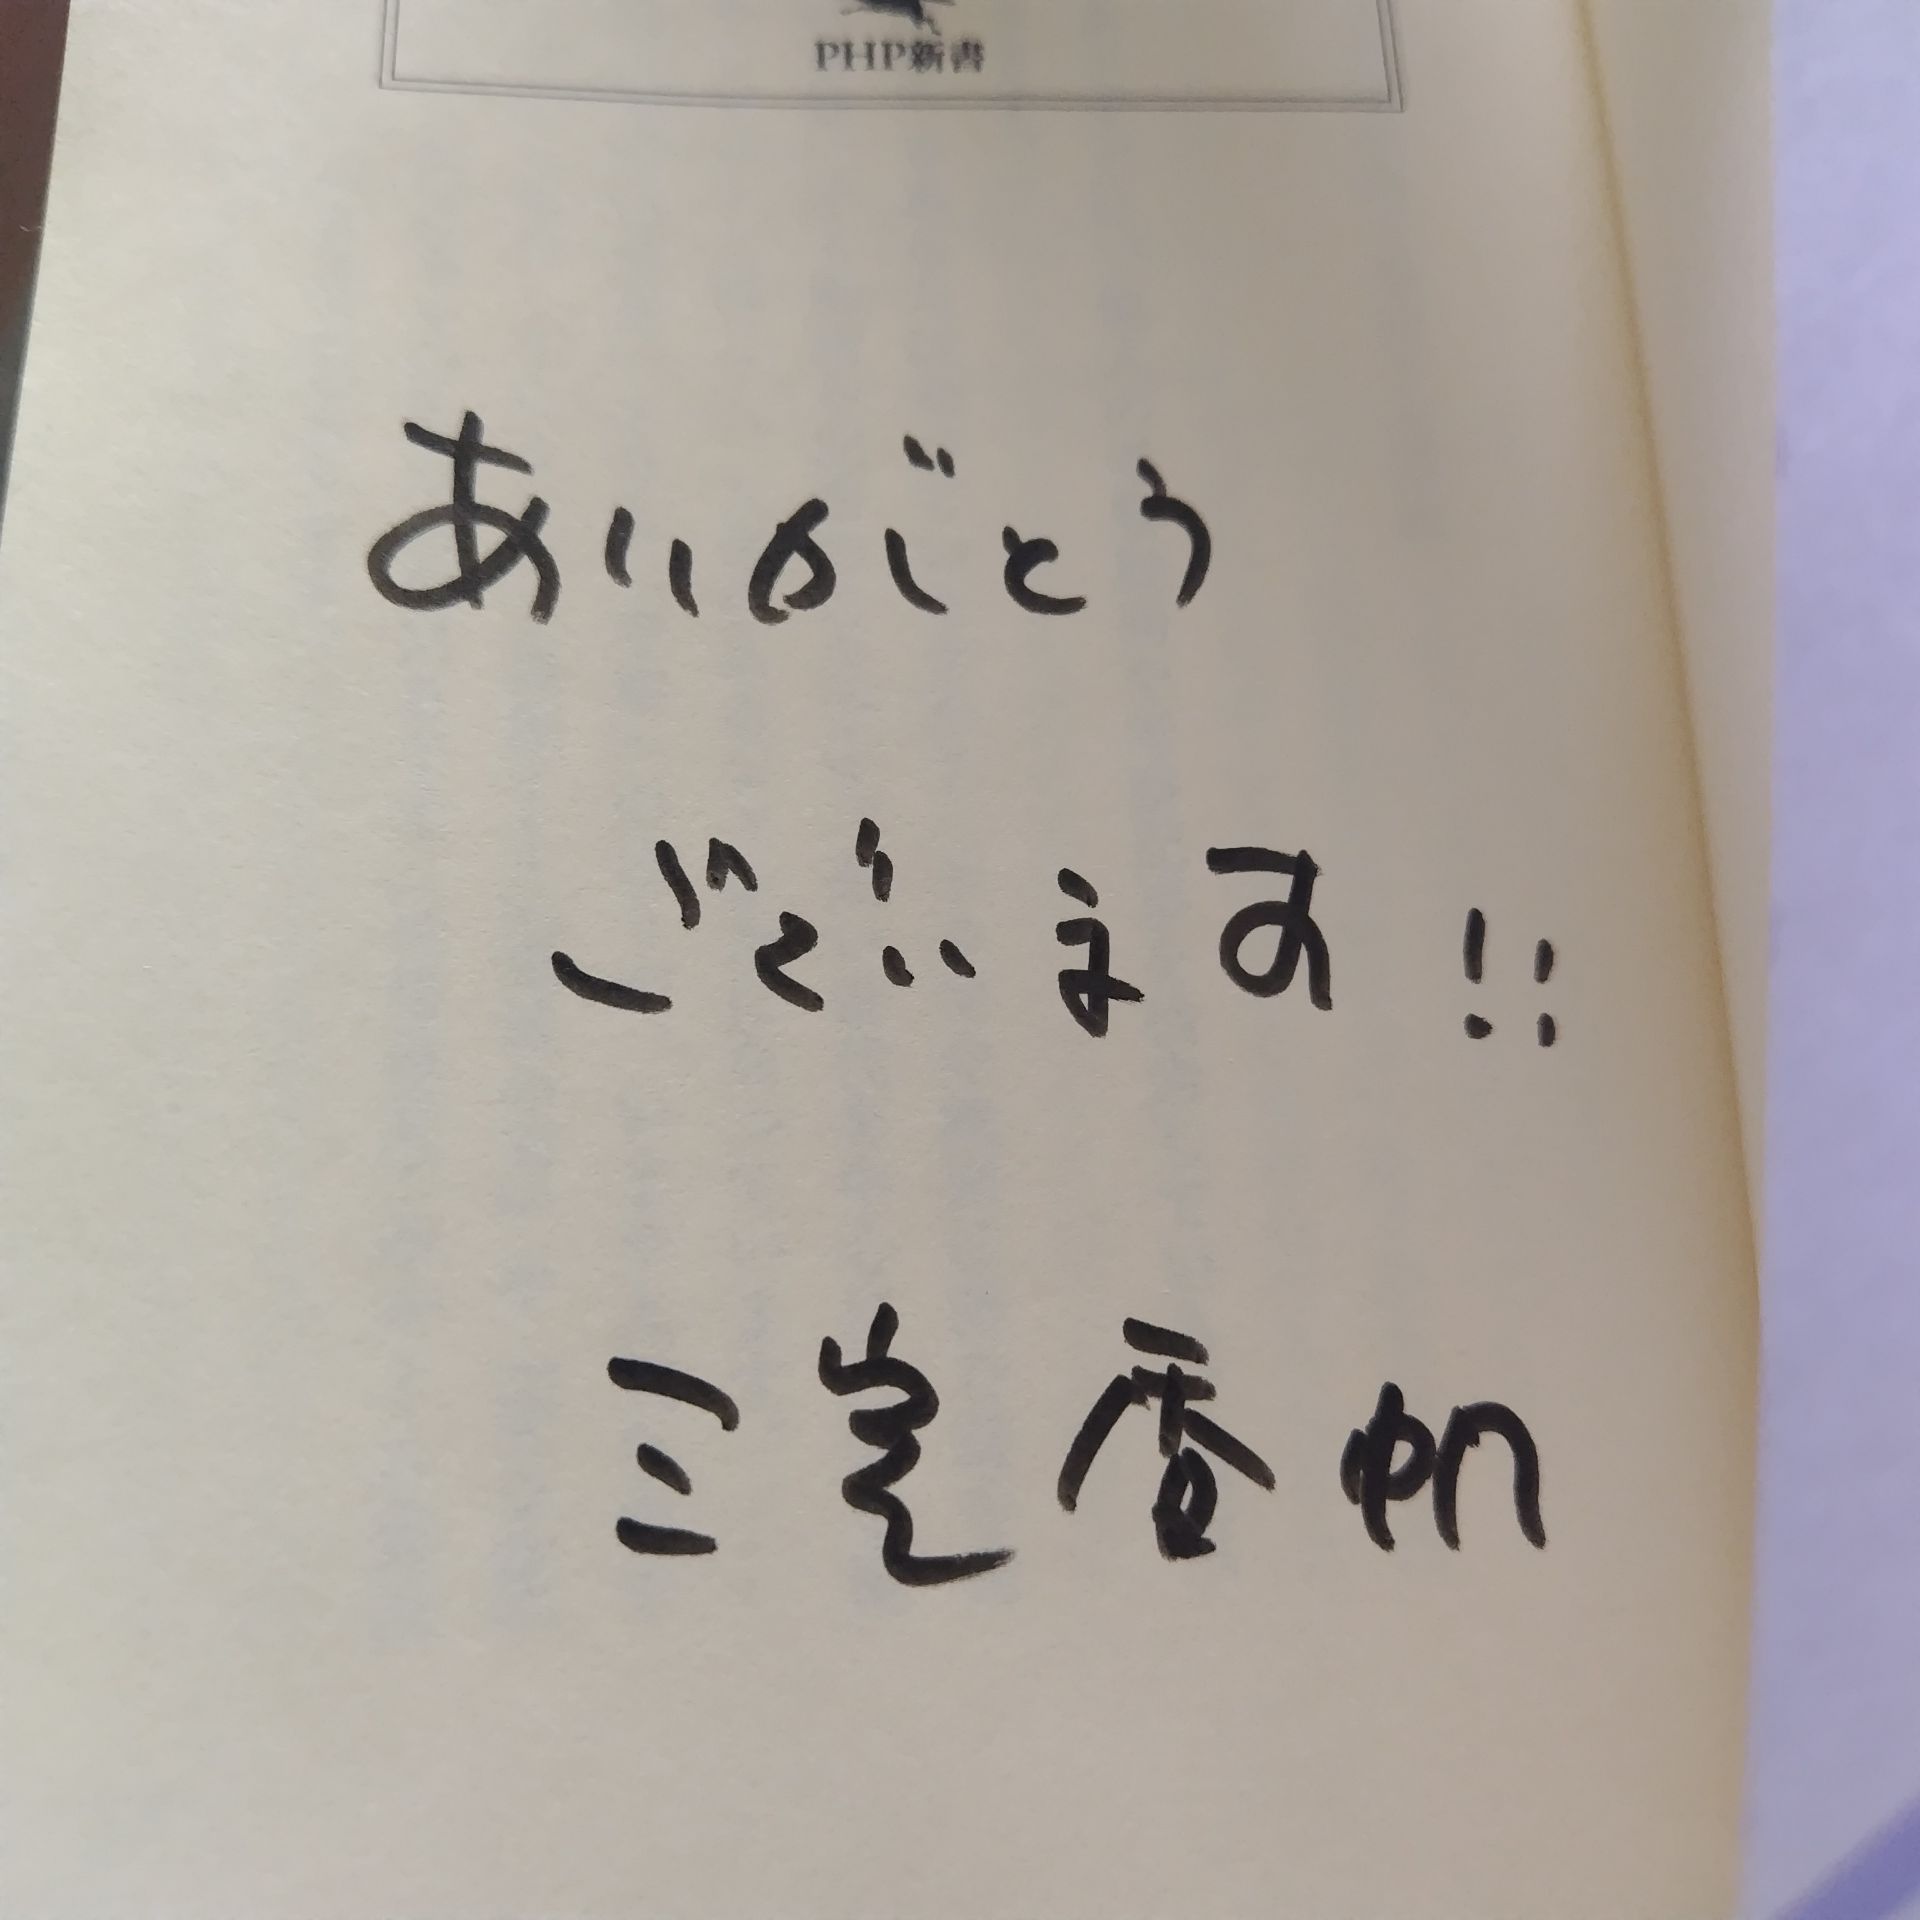 PHP新書
ありがとう
ございます!!
三宅香帆